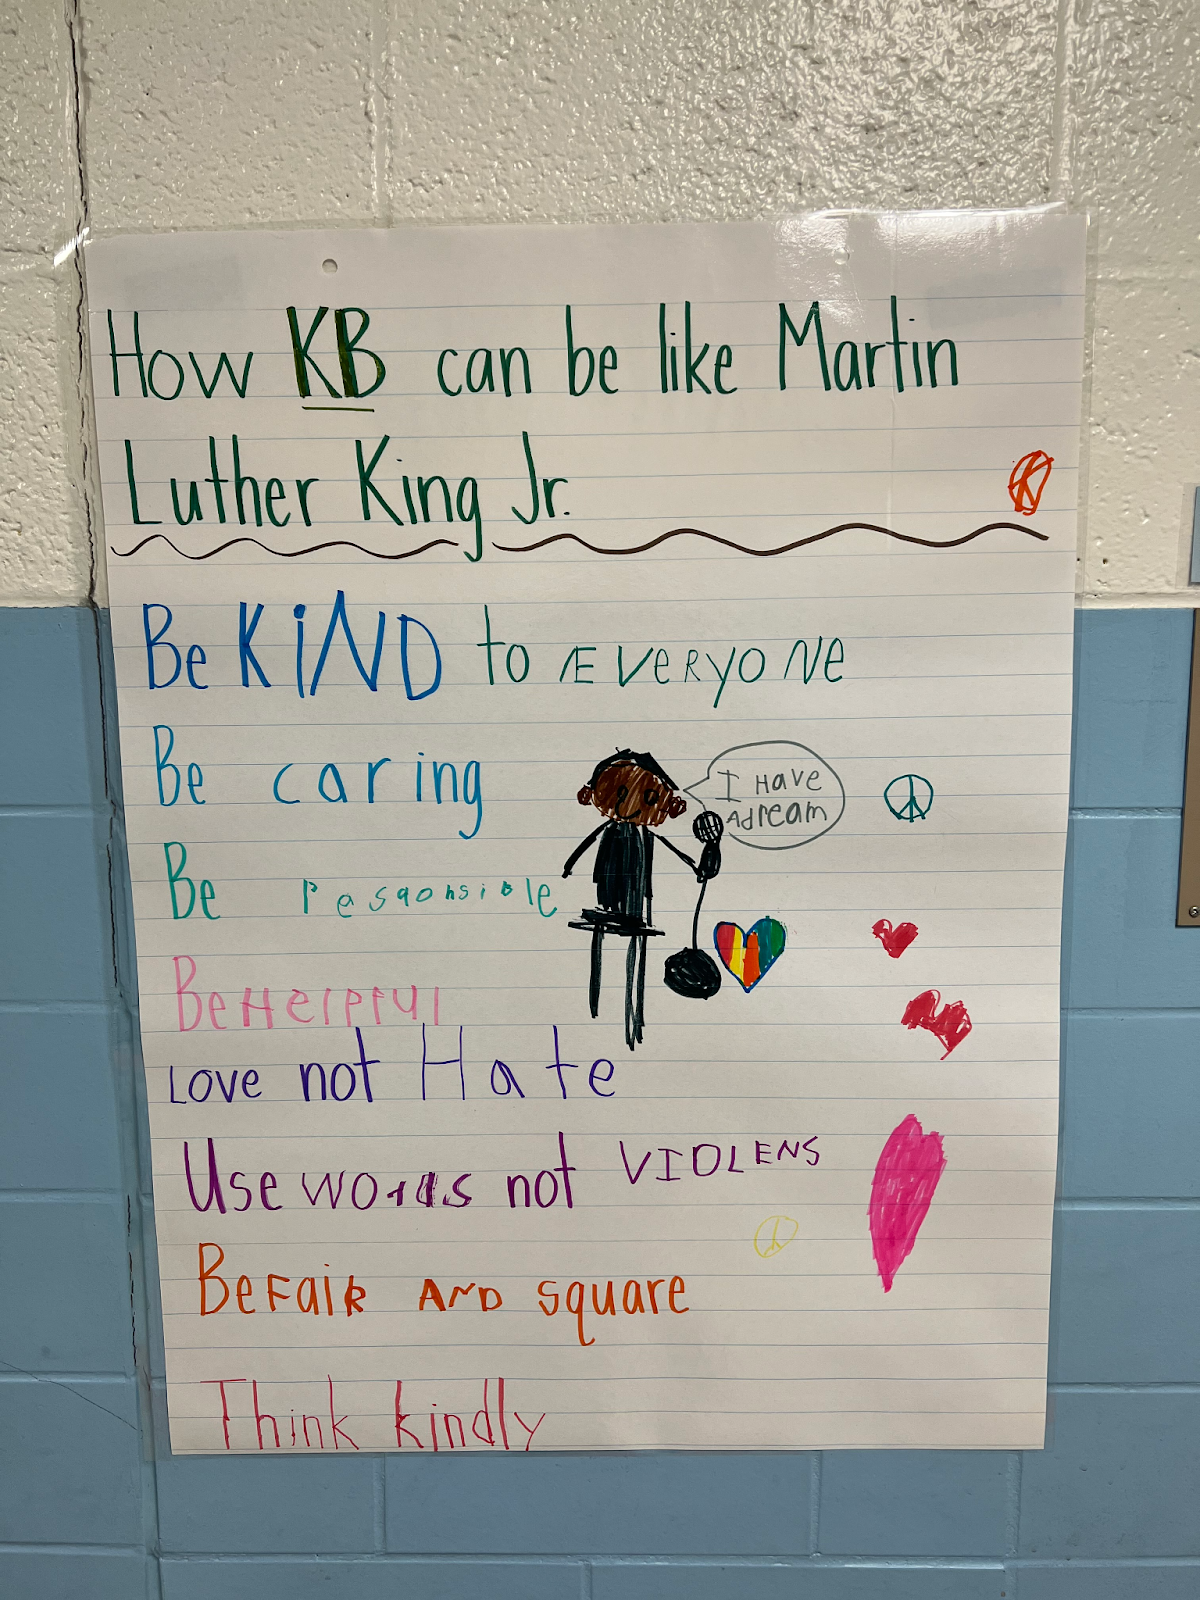 How KB can be like Martin
Luther King Jr.
K
Be KiND to EVeRYONe
Be caring
I Have
A dream
Be resqonsible
Be Helpful
Love not Hate
Use words not VIOLENS
Be FaiR AND square
Think kindly